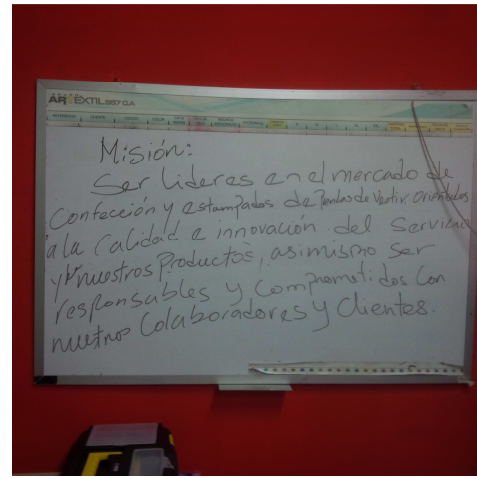 ARTEXTIL
REFERENCIA CLIENTE COLOR
Misión:
Ser Lideres en el mercado de
Confección y estampados de Prendas de Vestir. orientados
a la Calidad e innovación del Servicio
y nuestros Productos, asimismo ser
responsables y comprometidos con
nuestros Colaboradores y Clientes.